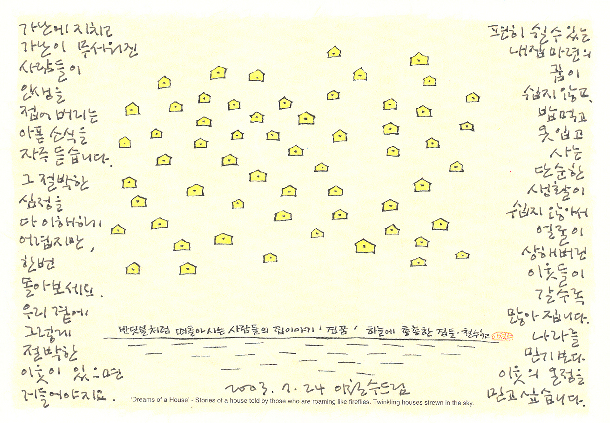 가난에 지치고
가난이 무서워진
사람들이
인생을
접어버리는
아픈 소식을
자주 듣습니다.
그 절박한
심정을
다 이해하기
어렵지만,
한번
돌아보세요.
우리 곁에
그렇게
절박한
이웃이 있으면
거들어야지요.
편히 쉴 수 있는
내집 마련의
꿈이
쉽지 않고,
밥먹고
옷입고
사는
단순한
생활이
쉽지 않아서
얼굴이
상해버린
이웃들이
갈수록
많아집니다.
나라를
믿기보다
이웃의 온정을
믿고 싶습니다.
반딧불처럼 떠돌아 사는 사람들의 집이야기 '집꿈' 하늘에 총총한 집들·철수
2003. 2. 24 이철수드림
'Dreams of a House' - Stories of a house told by those who are roaming like fireflies. Twinkling houses strewn in the sky.